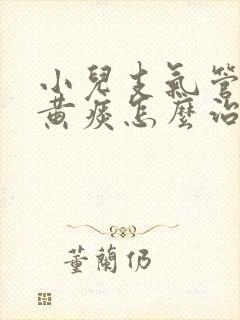 小兒支氣管
黃痰怎麼治
董蘭仍